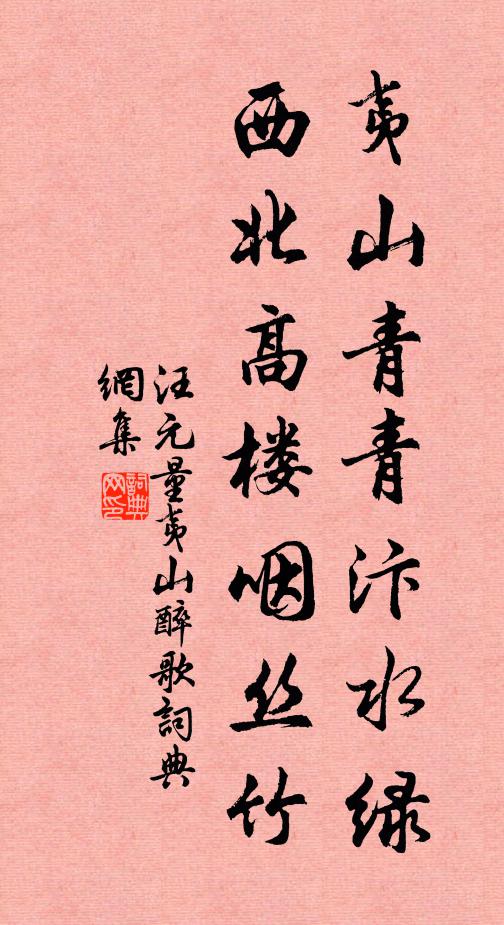 夷山青青汴水绿
西北高楼咽丝竹
汪元量夷山醉歌詞典
網集
詞典
网印